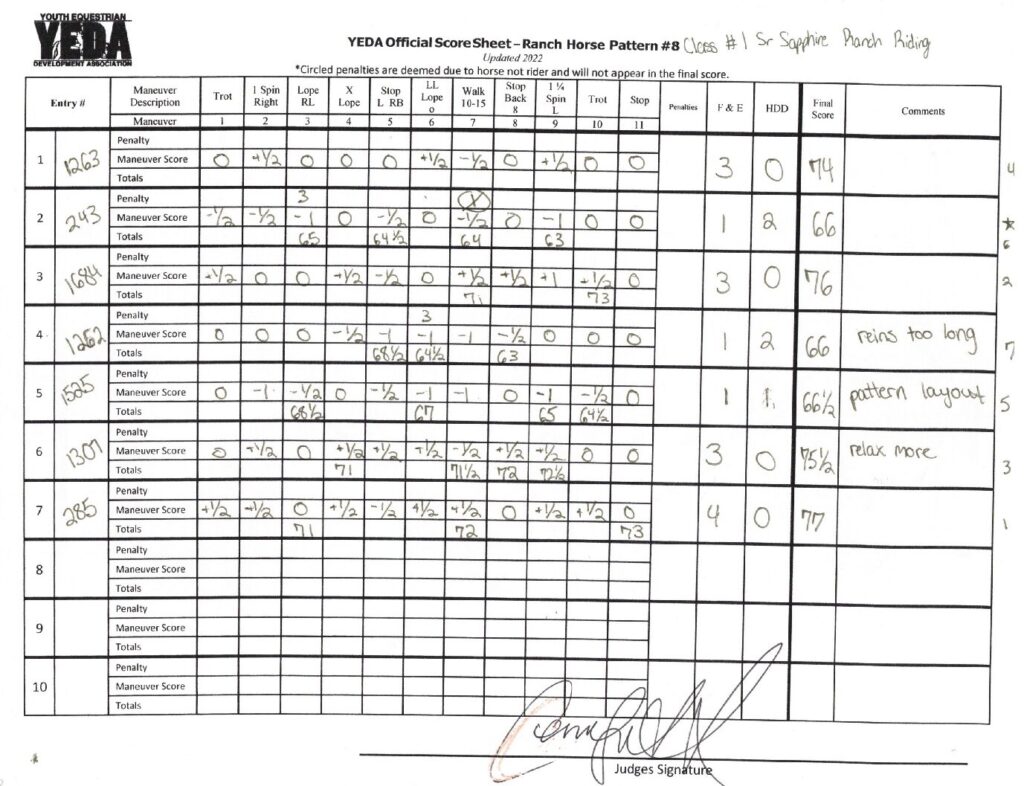 YOUTH EQUESTRIAN
YEDA
DEVELOPMENT ASSOCIATION
YEDA Official Score Sheet – Ranch Horse Pattern #8 Class #1 Sr Sapphire Ranch Riding
Updated 2022
*Circled penalties are deemed due to horse not rider and will not appear in the final score.
Entry # Maneuver Description Trot 1 Spin Right Lope RL X Lope Stop L RB LL Lope o Walk 10-15 Stop Back 8 1 ¼ Spin L Trot Stop Penalties F & E HDD Final Score Comments
Maneuver 1 2 3 4 5 6 7 8 9 10 11
Penalty
1 1263 Maneuver Score 0 +1/2 0 0 0 +1/2 -1/2 0 +1/2 0 0 3 0 74 4
Totals
Penalty 3 X
2 243 Maneuver Score -1/2 -1/2 -1 0 -1/2 0 -1/2 0 -1 0 0 1 2 66 * 6
Totals 65 64 1/2 64 63
Penalty
3 1684 Maneuver Score +1/2 0 0 +1/2 -1/2 0 +1/2 +1/2 +1 +1/2 0 3 0 76 2
Totals 71 73
Penalty 3
4 1262 Maneuver Score 0 0 0 -1/2 -1 -1 -1 -1/2 0 0 0 1 2 66 reins too long 7
Totals 68 1/2 64 1/2 63
Penalty
5 1525 Maneuver Score 0 -1 -1/2 0 -1/2 -1 -1 0 -1 -1/2 0 1 1 66 1/2 pattern layout 5
Totals 68 1/2 67 65 64 1/2
Penalty
6 1307 Maneuver Score 0 +1/2 0 +1/2 +1/2 +1/2 -1/2 +1/2 +1/2 0 0 3 0 75 1/2 relax more 3
Totals 71 71 1/2 72 72 1/2
Penalty
7 285 Maneuver Score +1/2 +1/2 0 +1/2 -1/2 +1/2 +1/2 0 +1/2 +1/2 0 4 0 77 1
Totals 71 72 73
Penalty
8 Maneuver Score
Totals
Penalty
9 Maneuver Score
Totals
Penalty
10 Maneuver Score
Totals
*
Judges Signature